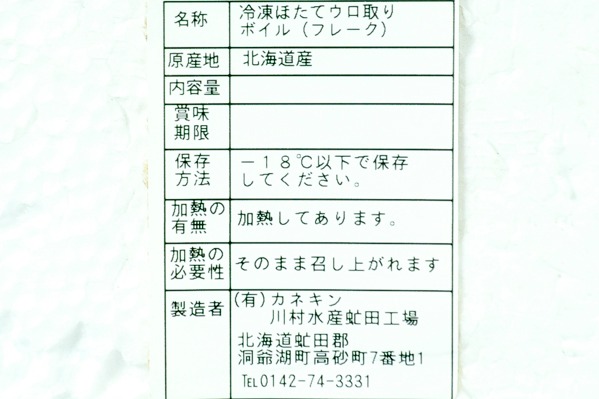 名称 冷凍ほたてウロ取り
ボイル（フレーク）
原産地 北海道産
内容量
賞味
期限
保存 －１８℃以下で保存
方法 してください。
加熱の
有無 加熱してあります。
加熱の
必要性 そのまま召し上がれます
製造者 (有) カネキン
川村水産虻田工場
北海道虻田郡
洞爺湖町高砂町7番地1
℡0142-74-3331